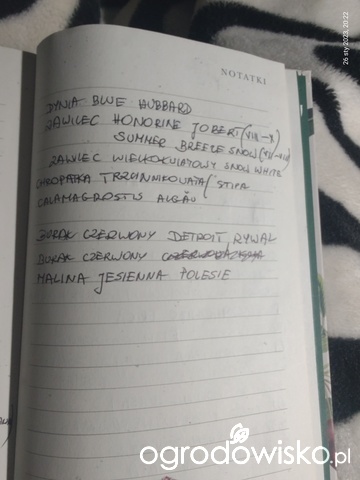 26 sty 2023, 20:22
NOTATKI
DYNIA BLUE HUBBARD
ZAWILEC HONORINE JOBERT (VIII-X)
SUMMER BREEZE SNOW (VII-VIII)
ZAWILEC WIELKOKWIATOWY SNOW WHITE
CHROPATKA TRZCINNIKOWATA / STIPA
CALAMAGROSTIS ALGÄU
BURAK CZERWONY DETROIT, RYWAL
BURAK CZERWONY
MALINA JESIENNA POLESIE
ogrodowisko.pl